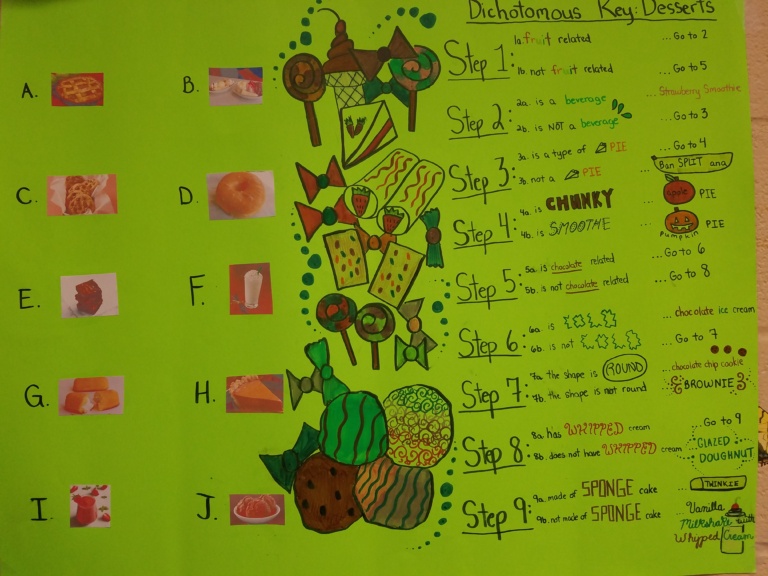 Dichotomous Key: Desserts
Step 1: 1a. fruit related ... Go to 2
1b. not fruit related ... Go to 5
Step 2: 2a. is a beverage ... Strawberry Smoothie
2b. is NOT a beverage ... Go to 3
Step 3: 3a. is a type of PIE ... Go to 4
3b. not a PIE ... Ban SPLIT ana
Step 4: 4a. is CHUNKY ... apple PIE
4b. is SMOOTHE ... Pumpkin PIE
Step 5: 5a. is chocolate related ... Go to 6
5b. is not chocolate related ... Go to 8
Step 6: 6a. is COLD ... chocolate ice cream
6b. is not COLD ... Go to 7
Step 7: 7a. the shape is ROUND ... chocolate chip cookie
7b. the shape is not round ... BROWNIE
Step 8: 8a. has WHIPPED cream ... Go to 9
8b. does not have WHIPPED cream ... GLAZED DOUGHNUT
Step 9: 9a. made of SPONGE cake ... TWINKIE
9b. not made of SPONGE cake ... Vanilla Milkshake with Whipped Cream
A.
B.
C.
D.
E.
F.
G.
H.
I.
J.